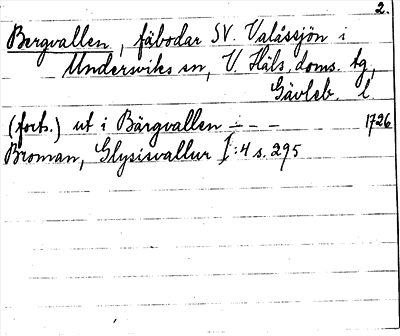 2.
Bergvallen, fäbodar SV. Valåssjön i
Undersviks sn, V. Häls. doms. tg,
Gävleb. l
(forts.) ut i Bärgvallen - - - 1726
Broman, Glysisvallur I:4 s. 295